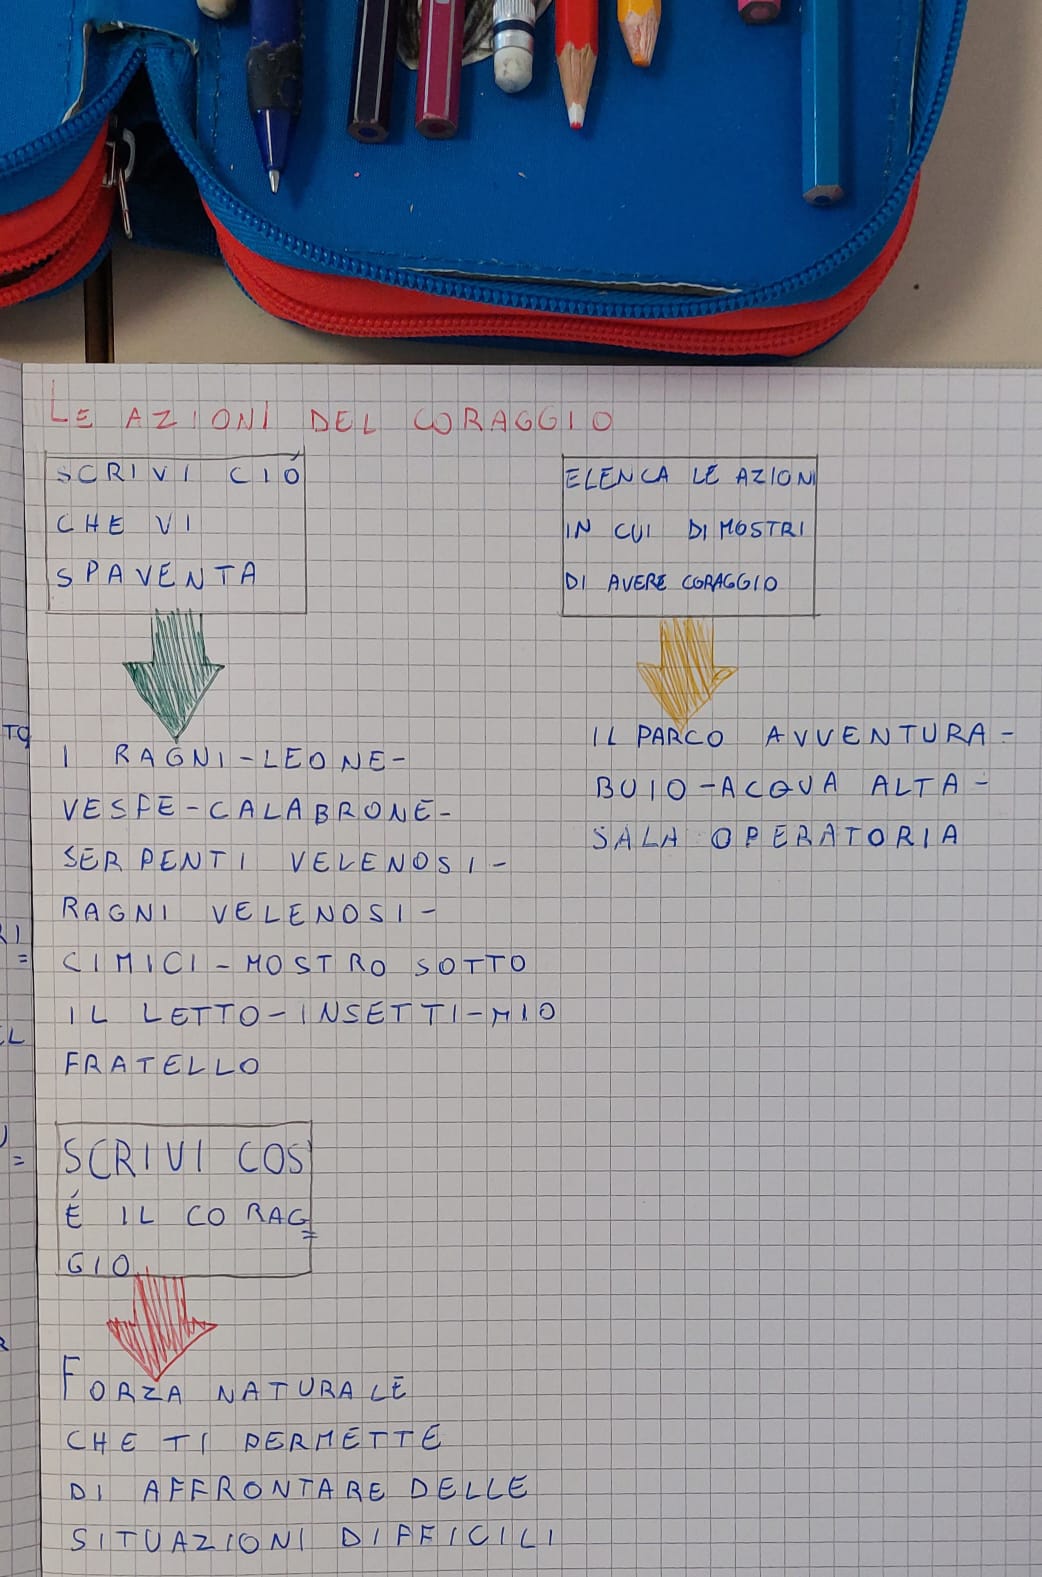 LE AZIONI DEL CORAGGIO
SCRIVI CIÓ
CHE VI
SPAVENTA
ELENCA LE AZIONI
IN CUI DIMOSTRI
DI AVERE CORAGGIO
I RAGNI-LEONE-
VESPE-CALABRONE-
SERPENTI VELENOSI-
RAGNI VELENOSI-
CIMICI-MOSTRO SOTTO
IL LETTO-INSETTI-MIO
FRATELLO
IL PARCO AVVENTURA-
BUIO-ACQUA ALTA-
SALA OPERATORIA
SCRIVI COS
É IL CORAG=
GIO
FORZA NATURALE
CHE TI PERMETTE
DI AFFRONTARE DELLE
SITUAZIONI DIFFICILI